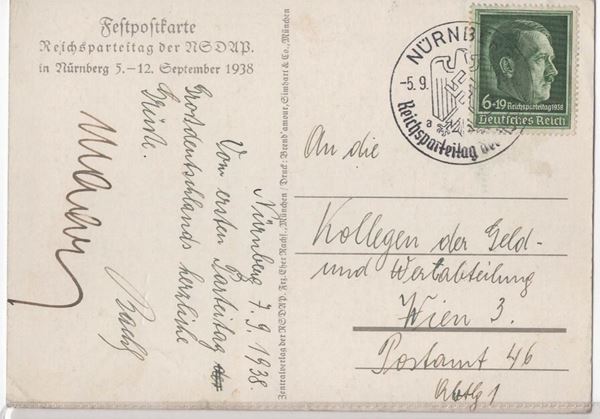 Festpostkarte
Reichsparteitag der NSDAP.
in Nürnberg 5.–12. September 1938
Nürnberg 7.9.1938.
Vom ersten Parteitag
Grossdeutschlands herzliche
Grüsse.
Zentralverlag der NSDAP. Frz. Eher Nachf., München / Druck: Brend'amour, Simhart & Co., München
NÜRNB
-5.9.
a
Reichsparteitag der
6+19 Reichsparteitag 1938
Deutsches Reich
An die
Kollegen der Geld-
und Wertabteilung
Wien 3.
Postamt 46
Abtlg 1